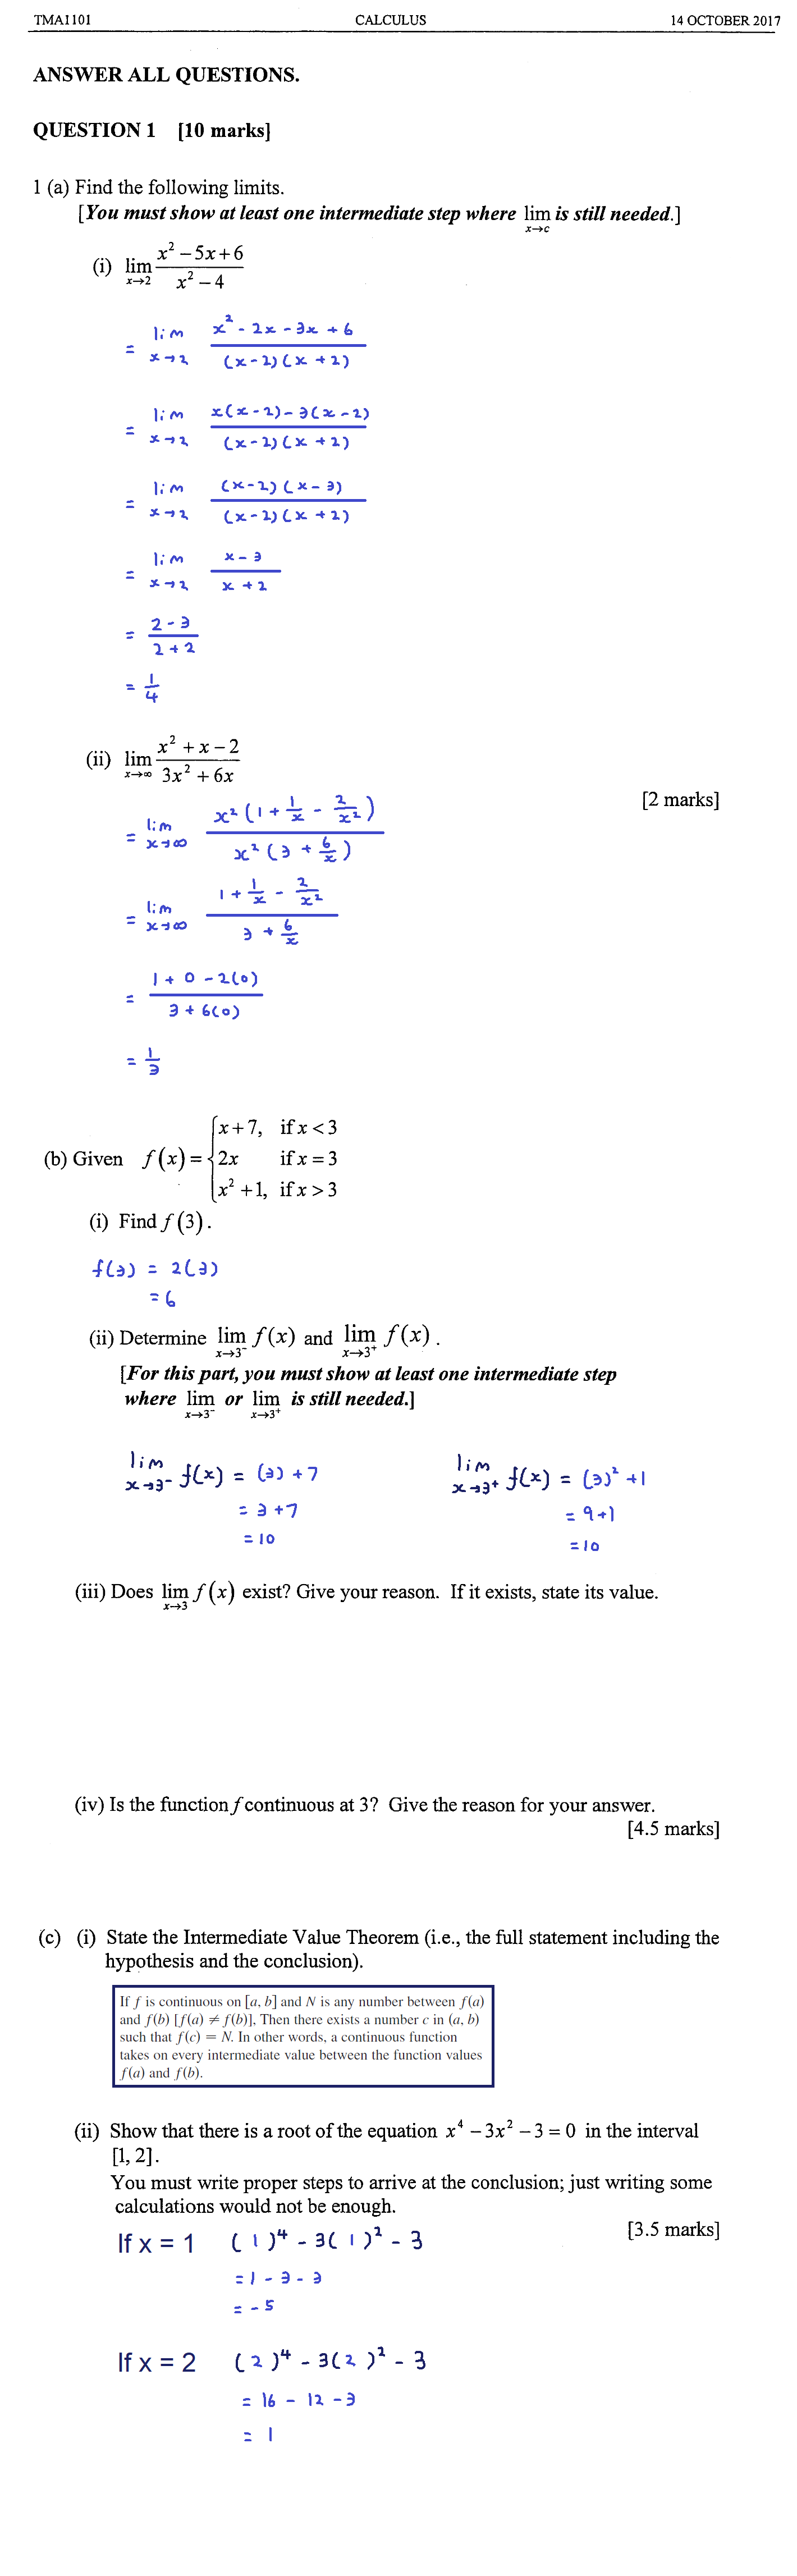 TMA1101 CALCULUS 14 OCTOBER 2017
ANSWER ALL QUESTIONS.
QUESTION 1 [10 marks]
1 (a) Find the following limits.
[You must show at least one intermediate step where lim x→c is still needed.]
(i) lim x→2 (x² − 5x + 6)/(x² − 4)
= lim x→2 (x² - 2x - 3x + 6)/((x-2)(x+2))
= lim x→2 (x(x-2) - 3(x-2))/((x-2)(x+2))
= lim x→2 ((x-2)(x-3))/((x-2)(x+2))
= lim x→2 (x-3)/(x+2)
= (2-3)/(2+2)
= 1/4
(ii) lim x→∞ (x² + x − 2)/(3x² + 6x)
[2 marks]
= lim x→∞ (x²(1 + 1/x - 2/x²))/(x²(3 + 6/x))
= lim x→∞ (1 + 1/x - 2/x²)/(3 + 6/x)
= (1 + 0 - 2(0))/(3 + 6(0))
= 1/3
(b) Given f(x) = { x + 7, if x < 3
2x if x = 3
x² + 1, if x > 3
(i) Find f(3).
f(3) = 2(3)
= 6
(ii) Determine lim x→3⁻ f(x) and lim x→3⁺ f(x).
[For this part, you must show at least one intermediate step
where lim x→3⁻ or lim x→3⁺ is still needed.]
lim x→3⁻ f(x) = (3) + 7 lim x→3⁺ f(x) = (3)² + 1
= 3 + 7 = 9 + 1
= 10 = 10
(iii) Does lim x→3 f(x) exist? Give your reason. If it exists, state its value.
(iv) Is the function f continuous at 3? Give the reason for your answer.
[4.5 marks]
(c) (i) State the Intermediate Value Theorem (i.e., the full statement including the
hypothesis and the conclusion).
If f is continuous on [a, b] and N is any number between f(a)
and f(b) [f(a) ≠ f(b)], Then there exists a number c in (a, b)
such that f(c) = N. In other words, a continuous function
takes on every intermediate value between the function values
f(a) and f(b).
(ii) Show that there is a root of the equation x⁴ − 3x² − 3 = 0 in the interval
[1, 2].
You must write proper steps to arrive at the conclusion; just writing some
calculations would not be enough.
[3.5 marks]
If x = 1 (1)⁴ - 3(1)² - 3
= 1 - 3 - 3
= - 5
If x = 2 (2)⁴ - 3(2)² - 3
= 16 - 12 - 3
= 1